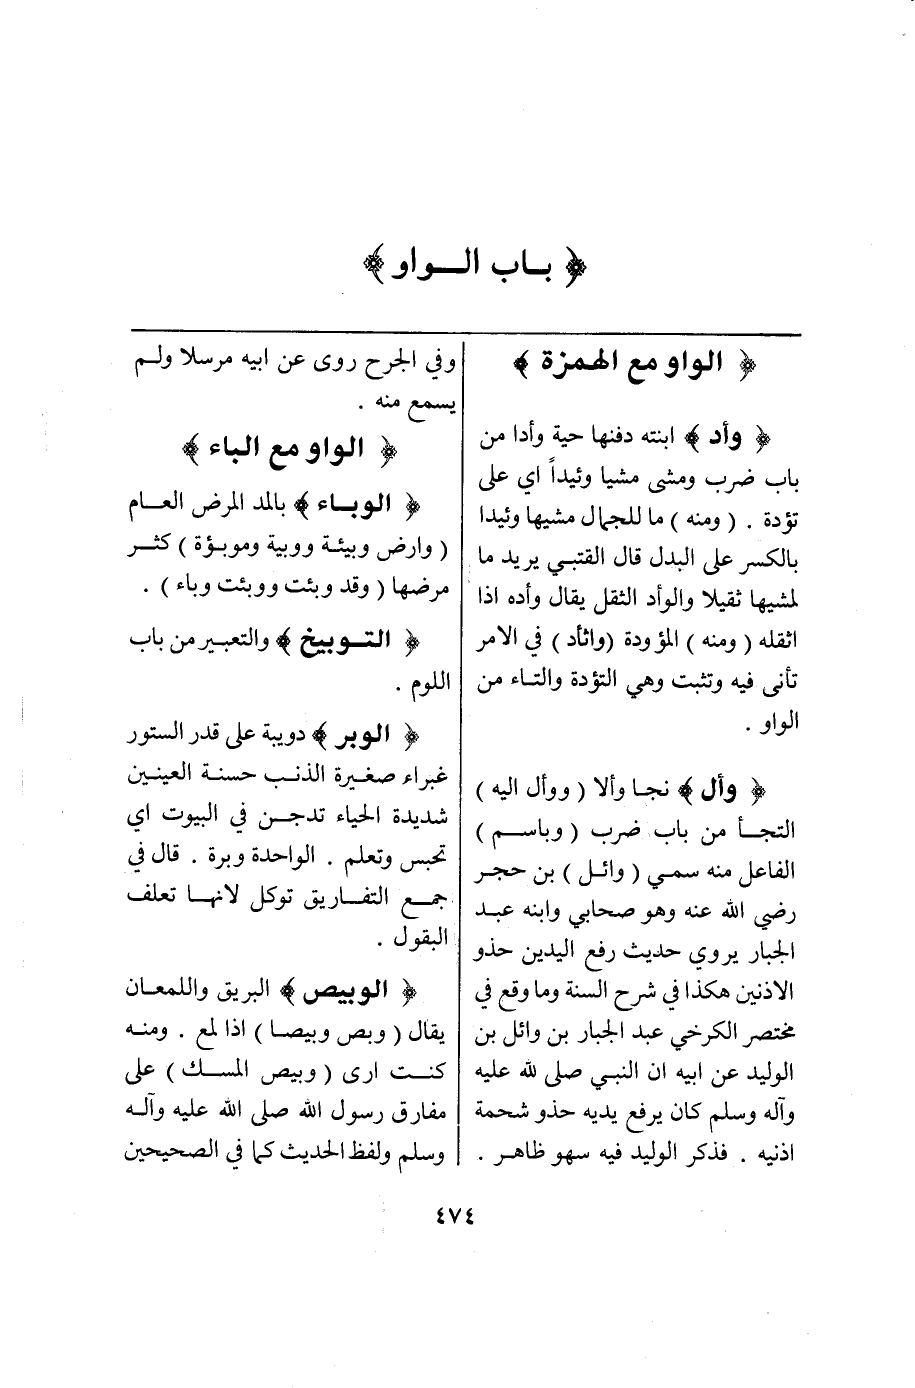 ﴿ بـاب الــواو ﴾
﴿ الواو مع الهمزة ﴾
﴿ وأد ﴾ ابنته دفنها حية وأدا من
باب ضرب ومشى مشيا وئيداً اي على
تؤدة . ( ومنه ) ما للجمال مشيها وئيدا
بالكسر على البدل قال القتبي يريد ما
لمشيها ثقيلا والوأد الثقل يقال وأده اذا
اثقله ( ومنه ) المؤودة (واتأد ) في الامر
تأنى فيه وتثبت وهي التؤدة والتاء من
الواو .
﴿ وأل ﴾ نجا وألا ( ووأل اليه )
التجأ من باب ضرب ( وباسم )
الفاعل منه سمي ( وائل ) بن حجر
رضي الله عنه وهو صحابي وابنه عبد
الجبار يروي حديث رفع اليدين حذو
الاذنين هكذا في شرح السنة وما وقع في
مختصر الكرخي عبد الجبار بن وائل بن
الوليد عن ابيه ان النبي صلى لله عليه
وآله وسلم كان يرفع يديه حذو شحمة
اذنيه . فذكر الوليد فيه سهو ظاهر .
وفي الجرح روى عن ابيه مرسلا ولم
يسمع منه .
﴿ الواو مع الباء ﴾
﴿ الوباء ﴾ بالمد المرض العام
( وارض وبيئة ووبية وموبؤة ) كثر
مرضها ( وقد وبئت ووبئت وباء ) .
﴿ التوبيخ ﴾ والتعبير من باب
اللوم .
﴿ الوبر ﴾ دويبة على قدر السنور
غبراء صغيرة الذنب حسنة العينين
شديدة الحياء تدجن في البيوت اي
تحبس وتعلم . الواحدة وبرة . قال في
جمع التفاريق توكل لانها تعلف
البقول .
﴿ الوبيص ﴾ البريق واللمعان
يقال ( وبص وبيصا ) اذا لمع . ومنه
كنت ارى ( وبيص المسك ) على
مفارق رسول الله صلى الله عليه وآله
وسلم ولفظ الحديث كما في الصحيحين
٤٧٤